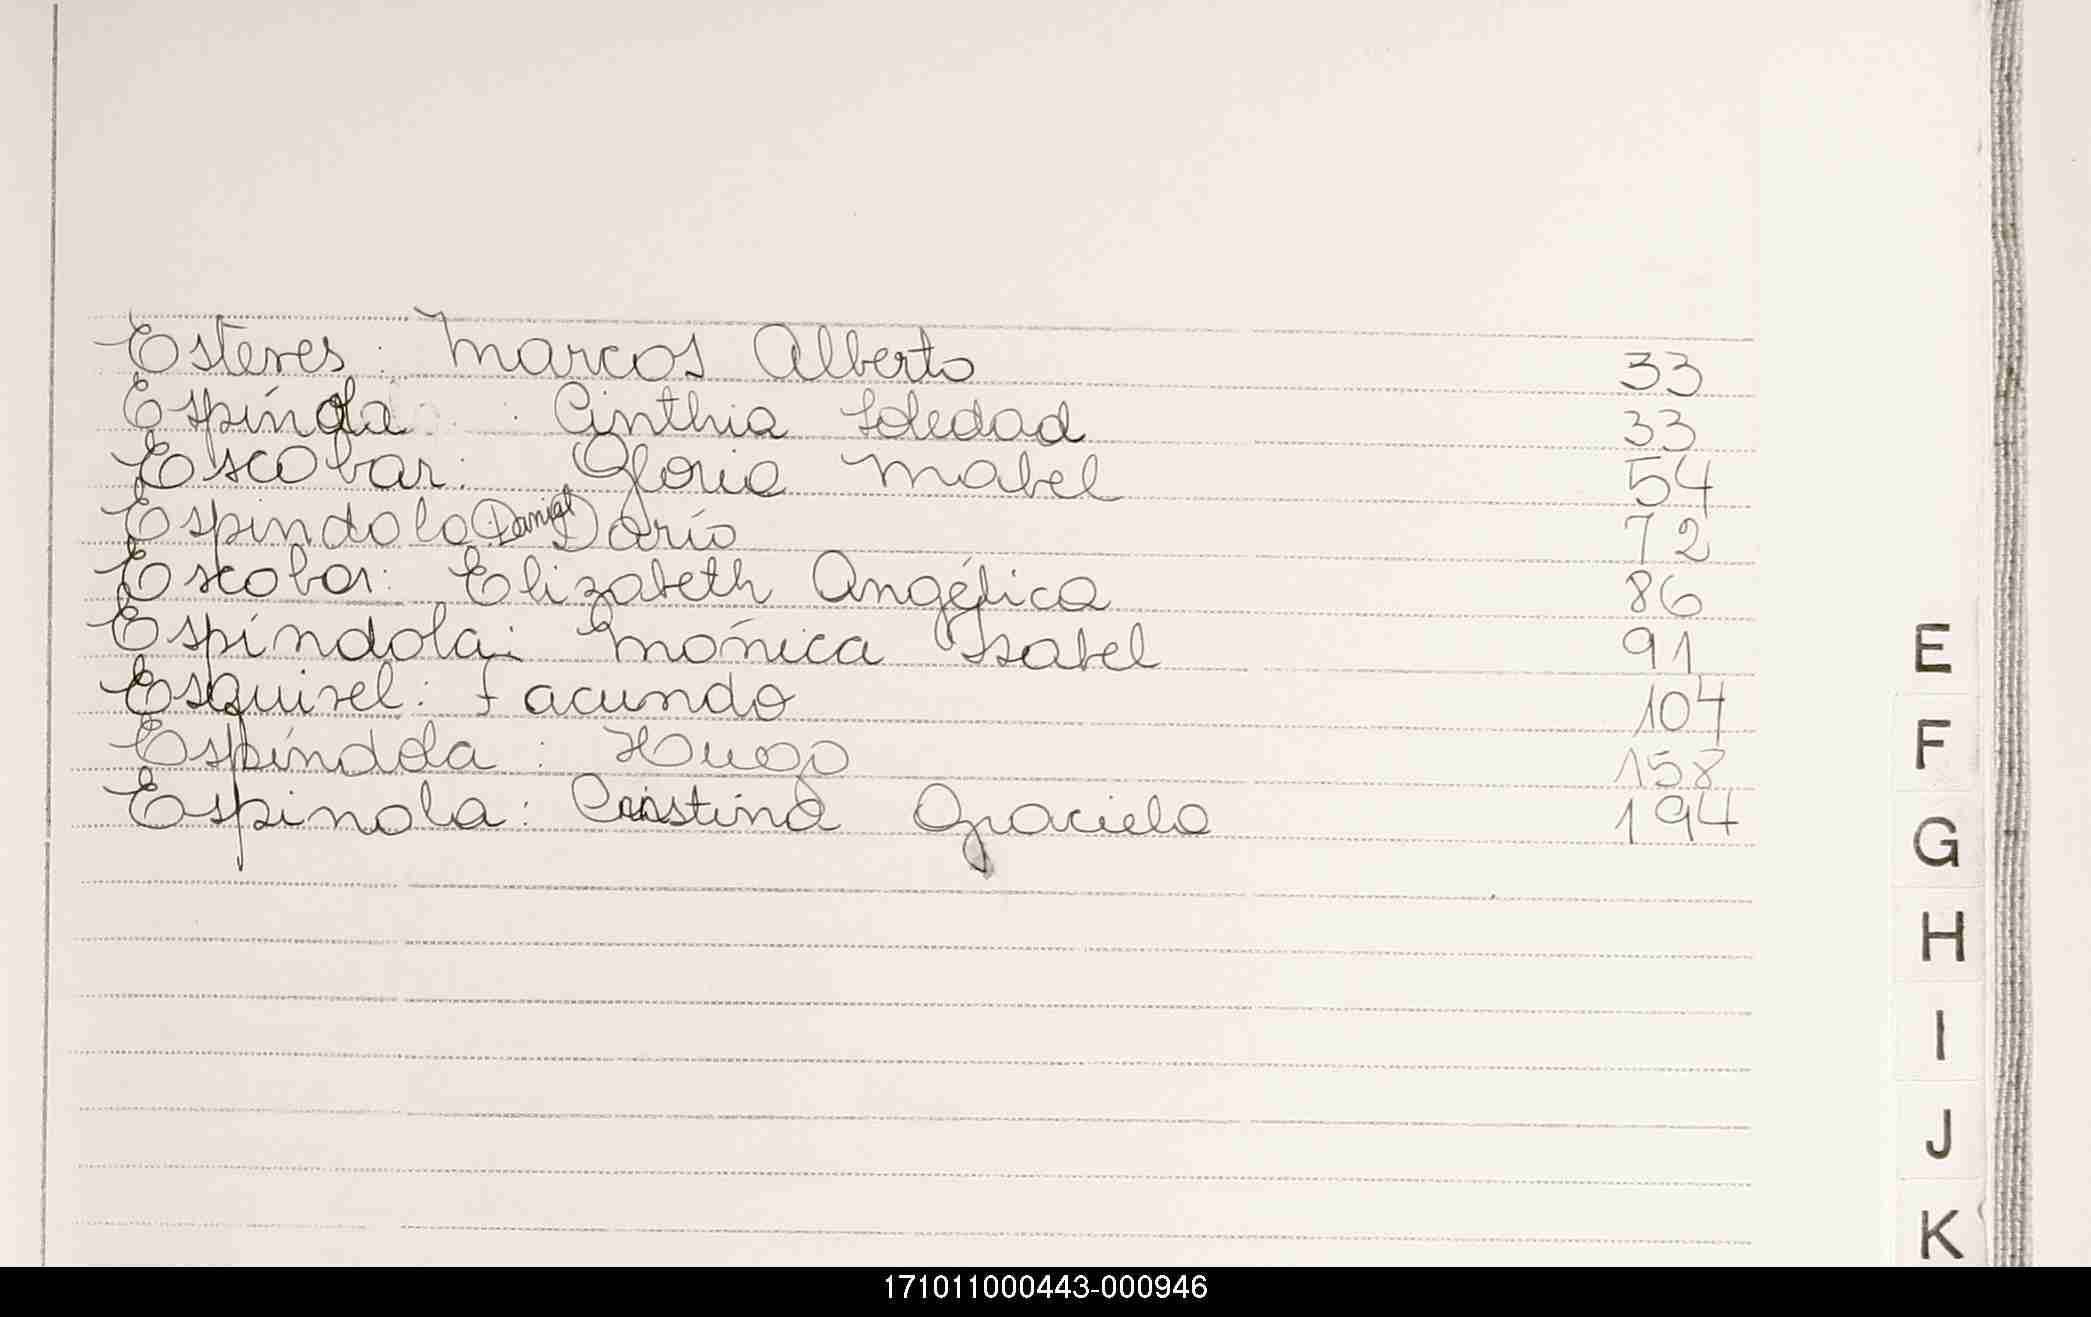 Esteves: Marcos Alberto 33
Espínola: Cinthia Soledad 33
Escobar: Gloria Mabel 54
Espíndola: Daniel Darío 72
Escobar: Elizabeth Angélica 86
Espíndola: Mónica Isabel 91
Esquivel: Facundo 104
Espíndola: Hugo 158
Espínola: Cristina Graciela 194
E
F
G
H
I
J
K
171011000443-000946